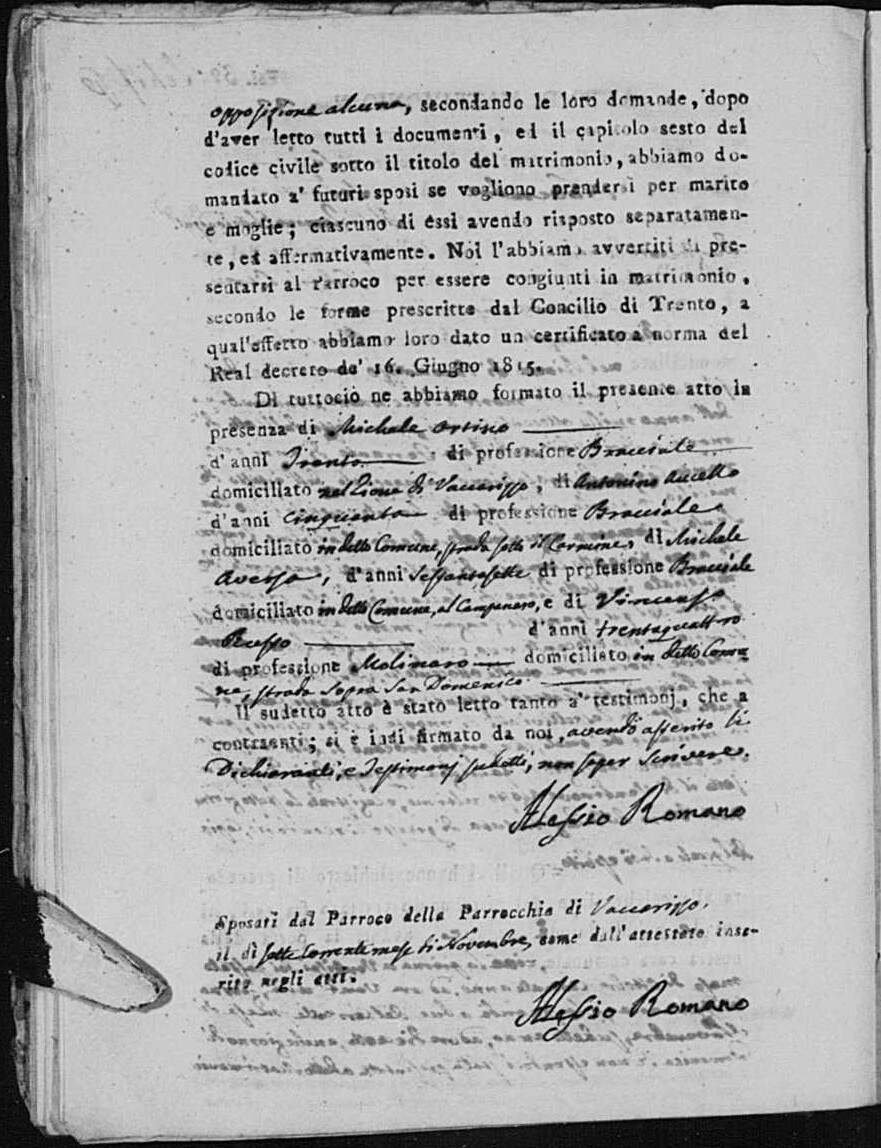 opposizione alcuna, secondando le loro domande, dopo
d'aver letto tutti i documenti, ed il capitolo sesto del
codice civile sotto il titolo del matrimonio, abbiamo do-
mandato a' futuri sposi se vogliono prendersi per marito
e moglie; ciascuno di essi avendo risposto separatamen-
te, ed affermativamente. Noi l'abbiamo avvertiti di pre-
sentarsi al Parroco per essere congiunti in matrimonio,
secondo le forme prescritte dal Concilio di Trento, a
qual'effetto abbiamo loro dato un certificato a norma del
Real decreto de' 16. Giugno 1815.
Di tuttociò ne abbiamo formato il presente atto in
presenza di Michele Orsino
d'anni Trenta di professione Bracciale
domiciliato nel Rione di Vaccarizzo, di Antonino
d'anni cinquanta di professione Bracciale
domiciliato in detto Comune, strada sotto il Carmine, di Michele
Aversa, d'anni sessantasette di professione Bracciale
domiciliato in detto Comune, al e di Vincenzo
d'anni trentaquattro
di professione Molinaro domiciliato in detto Comu
ne, strada sopra San Domenico.
Il sudetto atto è stato letto tanto a' testimonj, che a
contraenti; si è indi firmato da noi, avendo asserito li
Dichiaranti, e Testimonj sudetti, non saper scrivere.
Alessio Romano
Sposati dal Parroco della Parrocchia di Vaccarizzo,
il dì sette corrente mese di Novembre, come dall'attestato inse-
rito negli atti.
Alessio Romano